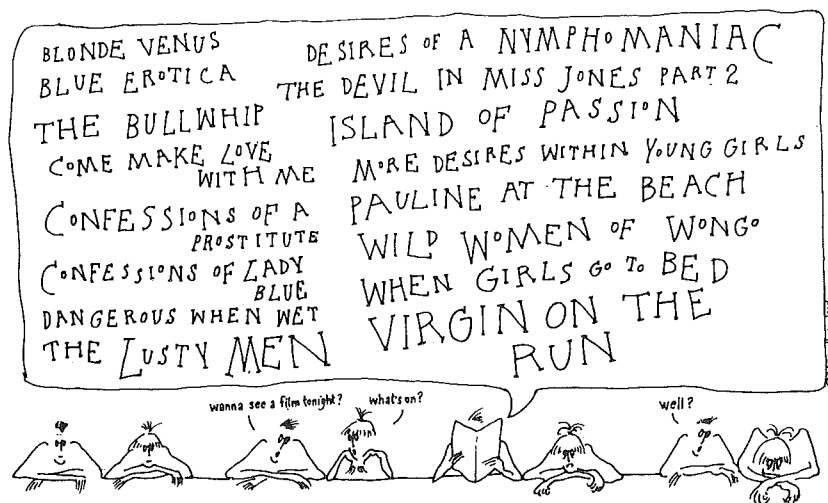 BLONDE VENUS
BLUE EROTICA
THE BULLWHIP
COME MAKE LOVE
WITH ME
CONFESSIONS OF A
PROSTITUTE
CONFESSIONS OF LADY
BLUE
DANGEROUS WHEN WET
THE LUSTY MEN
DESIRES OF A NYMPHOMANIAC
THE DEVIL IN MISS JONES PART 2
ISLAND OF PASSION
MORE DESIRES WITHIN YOUNG GIRLS
PAULINE AT THE BEACH
WILD WOMEN OF WONGO
WHEN GIRLS GO TO BED
VIRGIN ON THE
RUN
wanna see a film tonight?
what's on?
well?